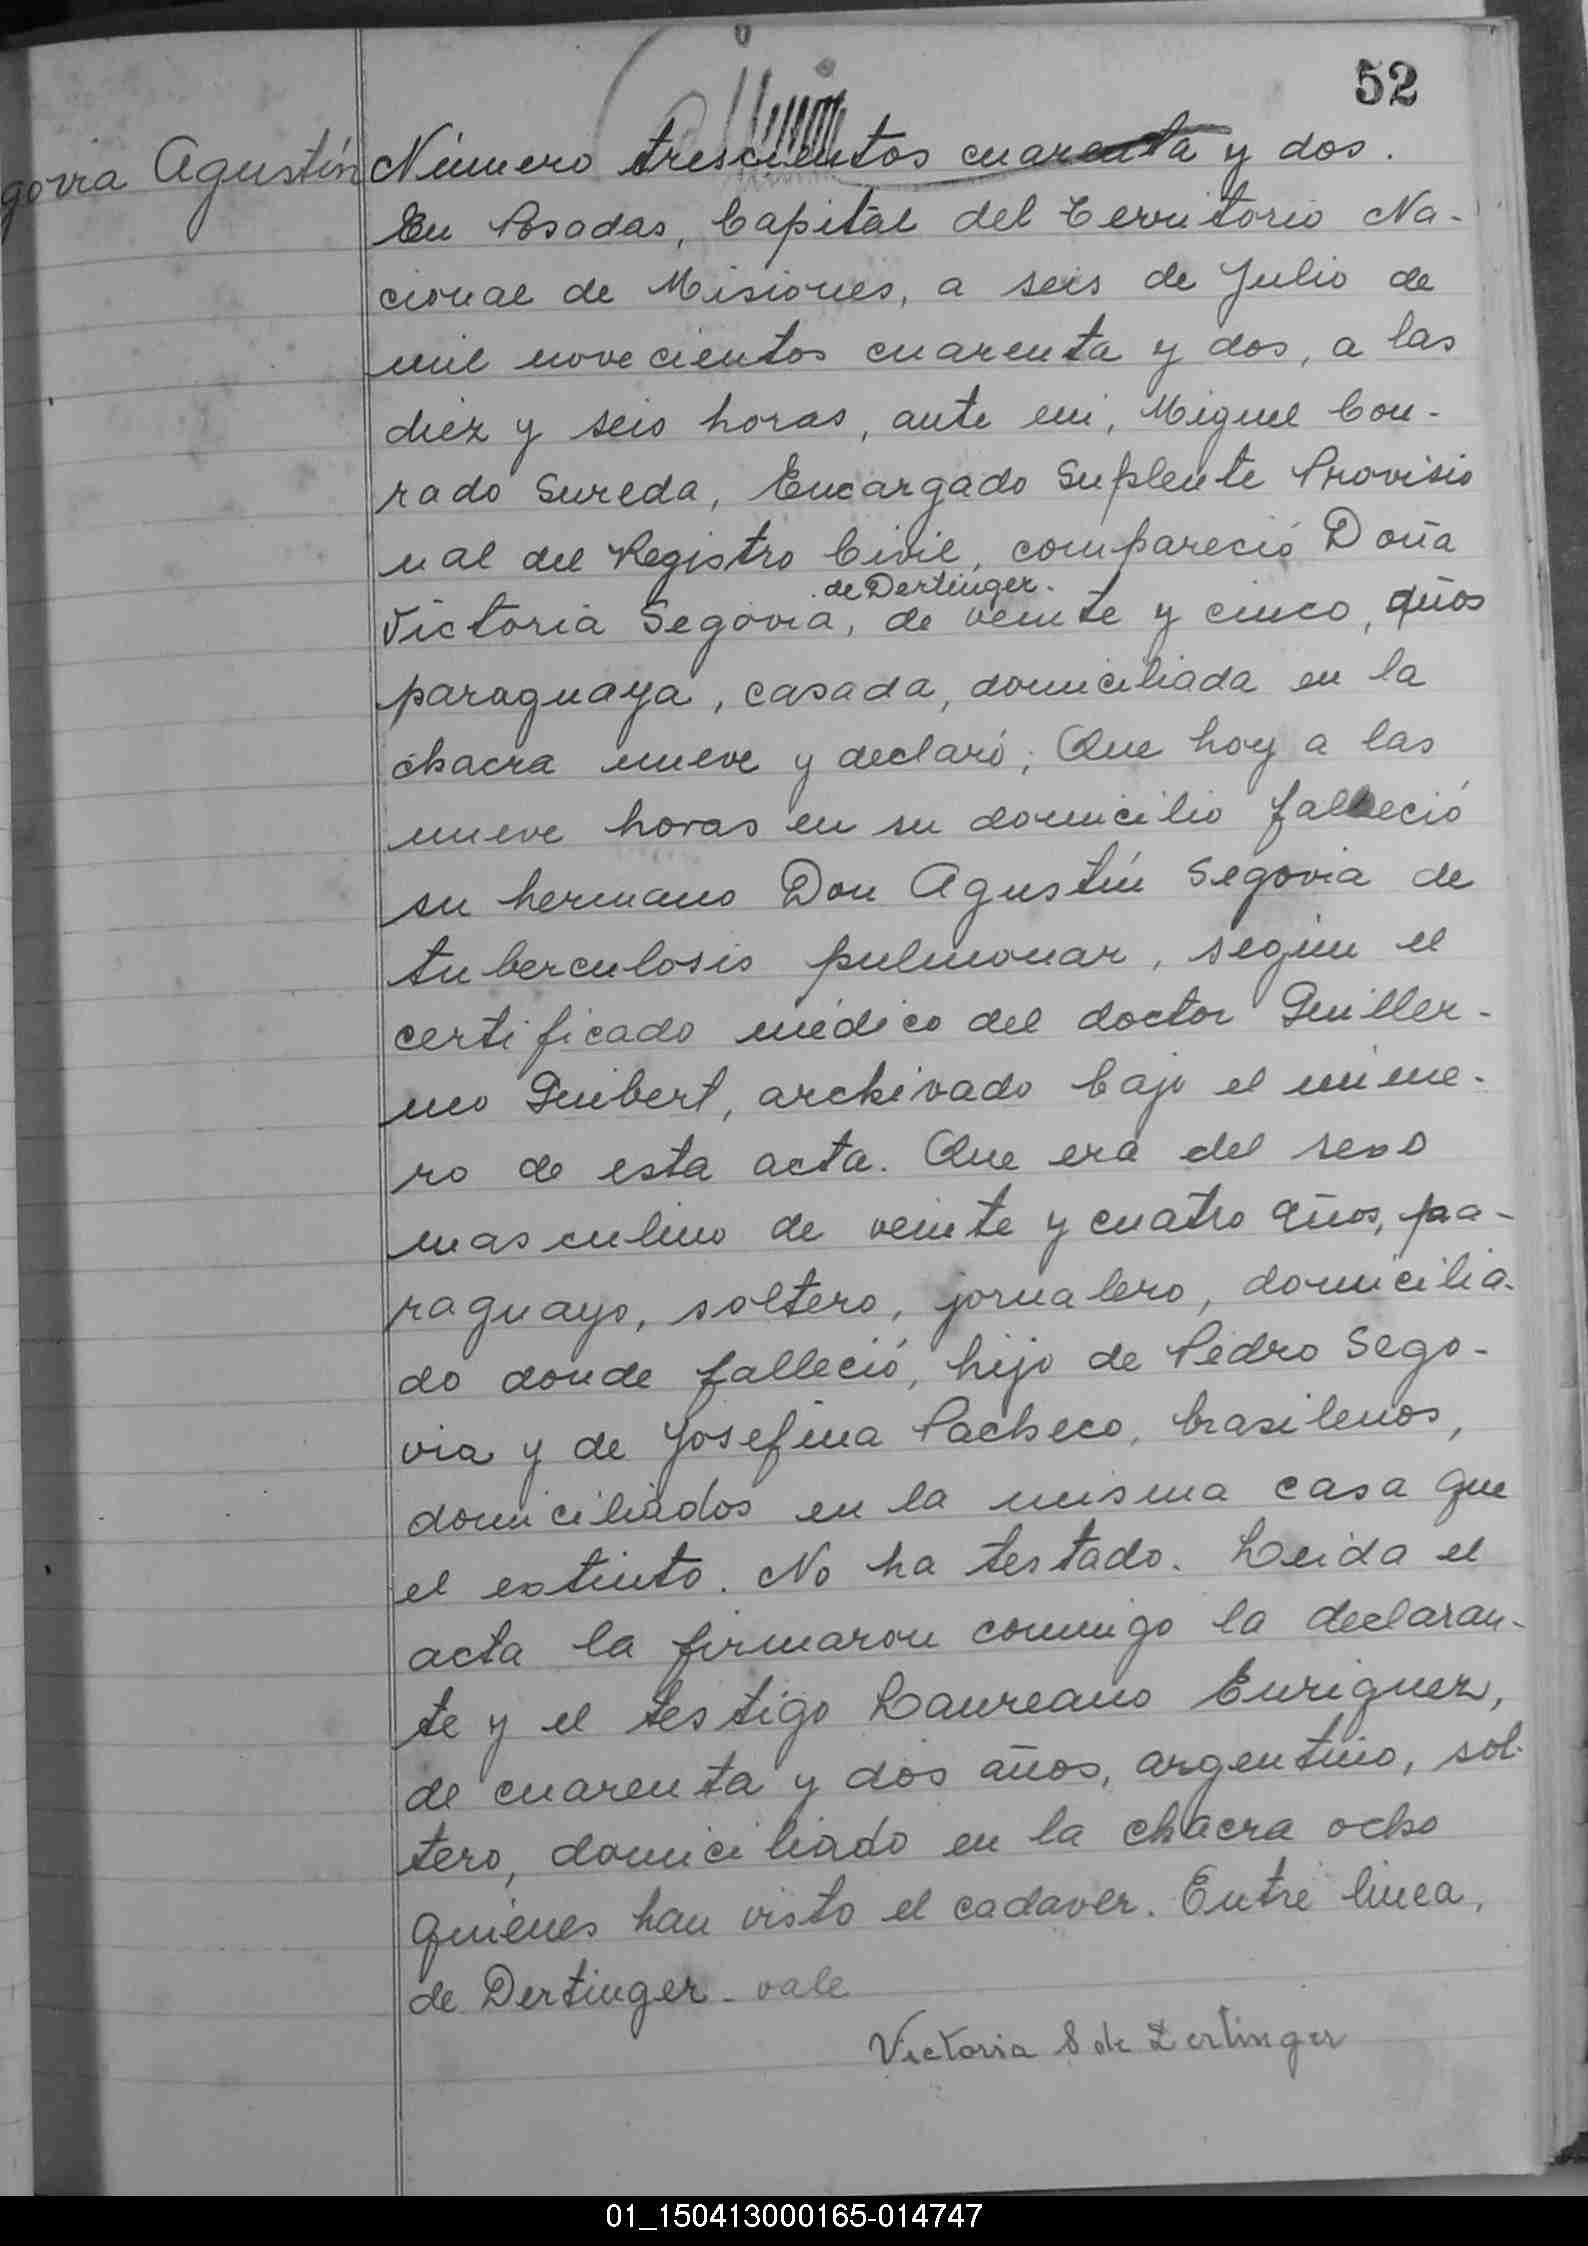 52
govia Agustín
Número trescientos cuarenta y dos.
En Posadas, Capital del Territorio Na-
cional de Misiones, a seis de Julio de
mil novecientos cuarenta y dos, a las
diez y seis horas, ante mi, Miguel Con-
rado Sureda, Encargado Suplente Provisio
nal del Registro Civil, compareció Doña
.de Dertinger.
Victoria Segovia, de veinte y cinco, años
paraguaya, casada, domiciliada en la
chacra nueve y declaró; Que hoy a las
nueve horas en su domicilio falleció
su hermano Don Agustín Segovia de
tuberculosis pulmonar, según el
certificado médico del doctor Guiller-
mo Guibert, archivado bajo el núme-
ro de esta acta. Que era del sexo
masculino de veinte y cuatro años, pa-
raguayo, soltero, jornalero, domicilia-
do donde falleció, hijo de Pedro Sego-
via y de Josefina Pacheco, brasilenos,
domiciliados en la misma casa que
el extinto. No ha testado. Leida el
acta la firmaron conmigo la declaran-
te y el testigo Laureano Enriquez,
de cuarenta y dos años, argentino, sol-
tero, domiciliado en la chacra ocho
quienes han visto el cadaver. Entre linea,
de Dertinger - vale
Victoria S de Dertinger
01_150413000165-014747